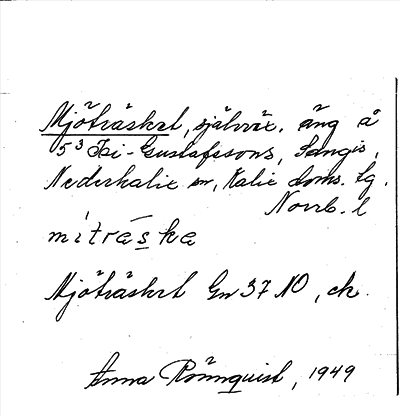 Mjöträsket, självväx. äng å
5³ Isi-Gustafssons, Sangis,
Nederkalix sn, Kalix doms. lg.
Norrb. l
mitrȧska
Mjöträsket Gn 37 NO, ek.
Anna Rönnquist, 1949